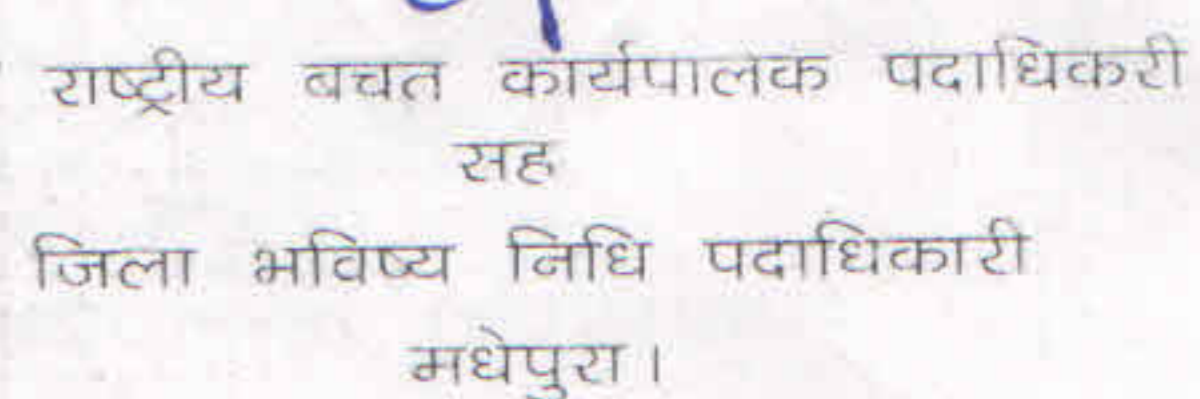 राष्ट्रीय बचत कार्यपालक पदाधिकरी
सह
जिला भविष्य निधि पदाधिकारी
मधेपुरा।